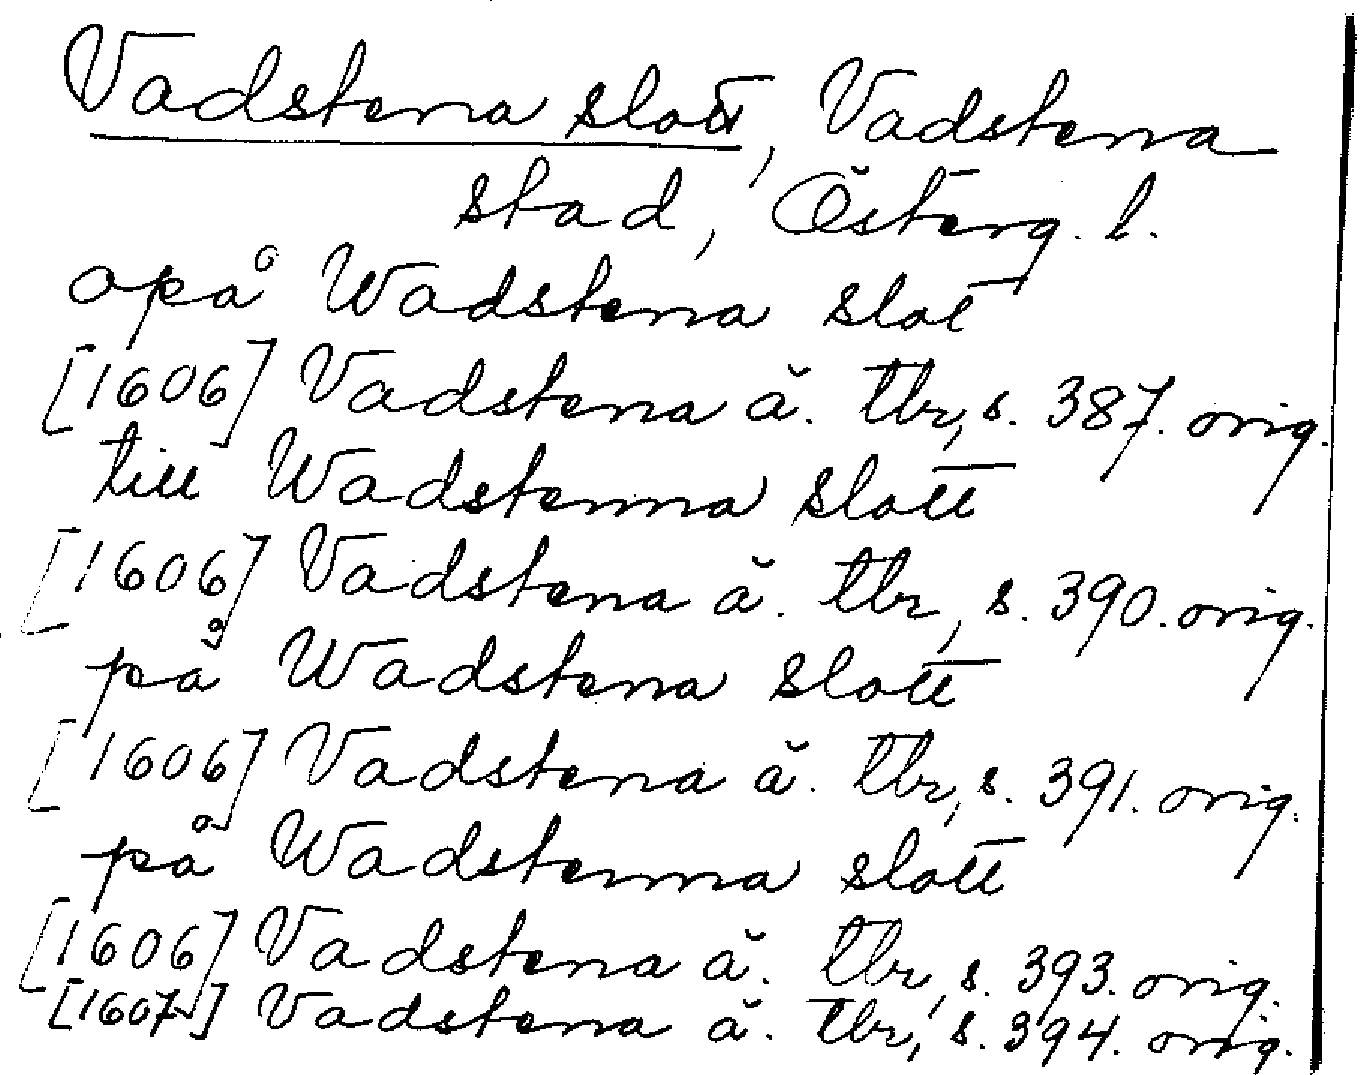 Vadstena slott, Vadstena
stad, Österg. l.
opå Wadstena slot
[1606] Vadstena ä. tbr, s. 387. orig.
till Wadstenna slott
[1606] Vadstena ä. tbr, s. 390. orig.
på Wadstena slott
[1606] Vadstena ä. tbr, s. 391. orig.
på Wadstenna slott
[1606] Vadstena ä. tbr, s. 393. orig.
[1607] Vadstena ä. tbr, s. 394. orig.